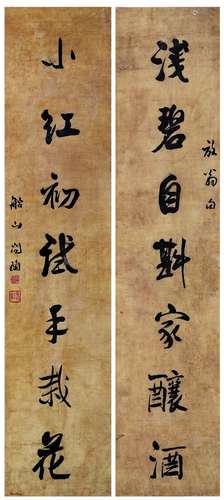 浅碧自斟家釀酒
放翁句
小紅初試手栽花
船山問陶